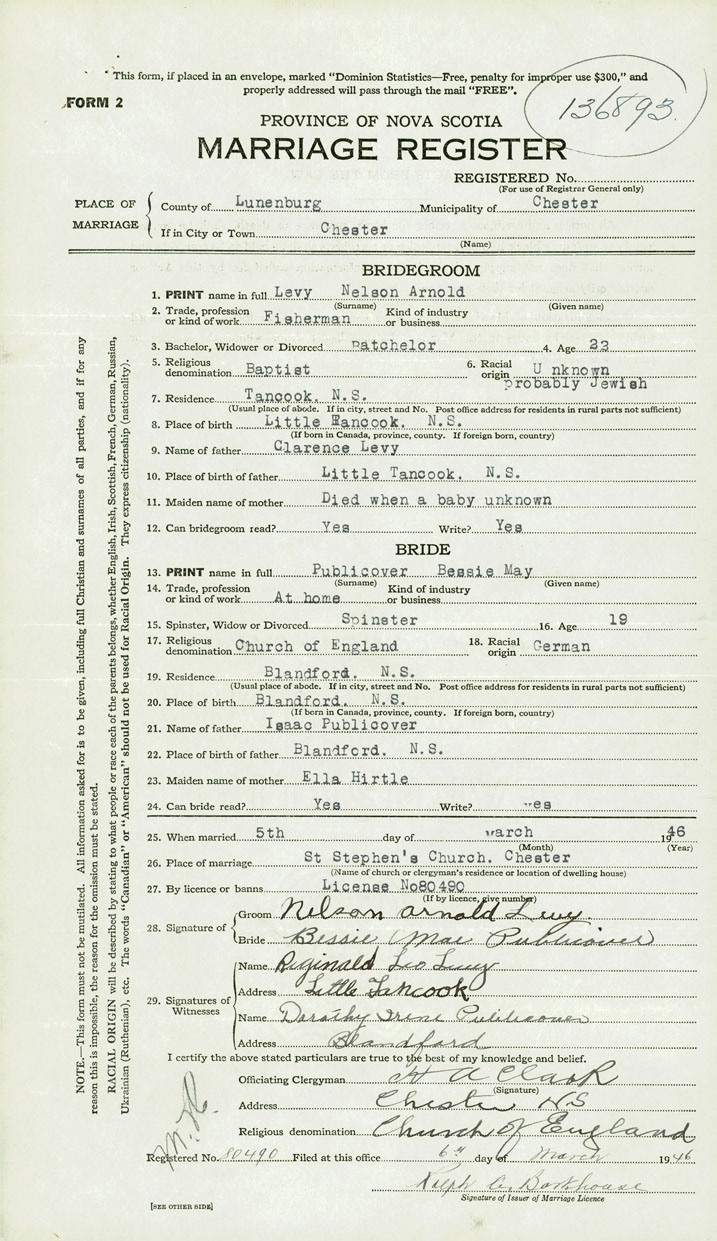 "This form, if placed in an envelope, marked "Dominion Statistics—Free, penalty for improper use $300," and
properly addressed will pass through the mail "FREE".
FORM 2
136893
PROVINCE OF NOVA SCOTIA
MARRIAGE REGISTER
REGISTERED No.
(For use of Registrar General only)
PLACE OF MARRIAGE
County of Lunenburg Municipality of Chester
If in City or Town Chester
(Name)
BRIDEGROOM
1. PRINT name in full Levy Nelson Arnold
(Surname) (Given name)
2. Trade, profession or kind of work Fisherman Kind of industry or business
3. Bachelor, Widower or Divorced Batchelor 4. Age 23
5. Religious denomination Baptist 6. Racial origin U nknown
probably Jewish
7. Residence Tancook. N.S.
(Usual place of abode. If in city, street and No. Post office address for residents in rural parts not sufficient)
8. Place of birth Little Tancook. N.S.
(If born in Canada, province, county. If foreign born, country)
9. Name of father Clarence Levy
10. Place of birth of father Little Tancook. N.S.
11. Maiden name of mother Died when a baby unknown
12. Can bridegroom read? Yes Write? Yes
BRIDE
13. PRINT name in full Publicover Bessie May
(Surname) (Given name)
14. Trade, profession or kind of work At home Kind of industry or business
15. Spinster, Widow or Divorced Spinster 16. Age 19
17. Religious denomination Church of England 18. Racial origin German
19. Residence Blandford. N.S.
(Usual place of abode. If in city, street and No. Post office address for residents in rural parts not sufficient)
20. Place of birth Blandford. N.S.
(If born in Canada, province, county. If foreign born, country)
21. Name of father Isaac Publicover
22. Place of birth of father Blandford. N.S.
23. Maiden name of mother Ella Hirtle
24. Can bride read? Yes Write? Yes
25. When married 5th day of March 1946
(Month) (Year)
26. Place of marriage St Stephen's Church. Chester
(Name of church or clergyman's residence or location of dwelling house)
27. By licence or banns License No80490
(If by licence, give number)
28. Signature of
Groom Nelson Arnold Levy.
Bride Bessie Mae Publicover
29. Signatures of Witnesses
Name Reginald Leo Levy
Address Little Tancook
Name Dorothy Irene Publicover
Address Blandford
I certify the above stated particulars are true to the best of my knowledge and belief.
Officiating Clergyman H A Clark
(Signature)
Address Chester NS
Religious denomination Church of England
Registered No. 80490 Filed at this office 6th day of March 1946
Ralph C. Barkhouse
Signature of Issuer of Marriage Licence
[SEE OTHER SIDE]
NOTE.—This form must not be mutilated. All information asked for is to be given, including full Christian and surnames of all parties, and if for any
reason this is impossible, the reason for the omission must be stated.
RACIAL ORIGIN will be described by stating to what people or race each of the parents belongs, whether English, Irish, Scottish, French, German, Russian,
Ukrainian (Ruthenian), etc. The words "Canadian" or "American" should not be used for Racial Origin. They express citizenship (nationality).